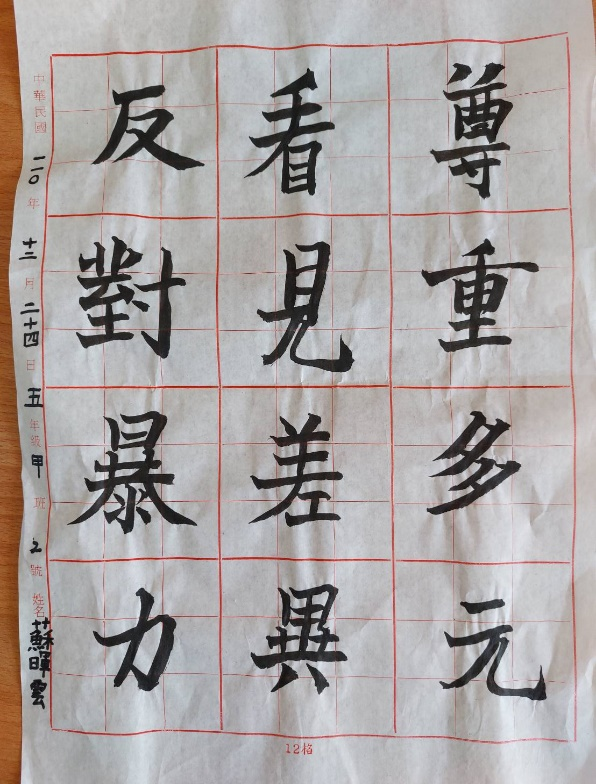 尊重多元
看見差異
反對暴力
中華民國二〇年十二月二十四日五年級甲班2號姓名蘇暉雲
12格